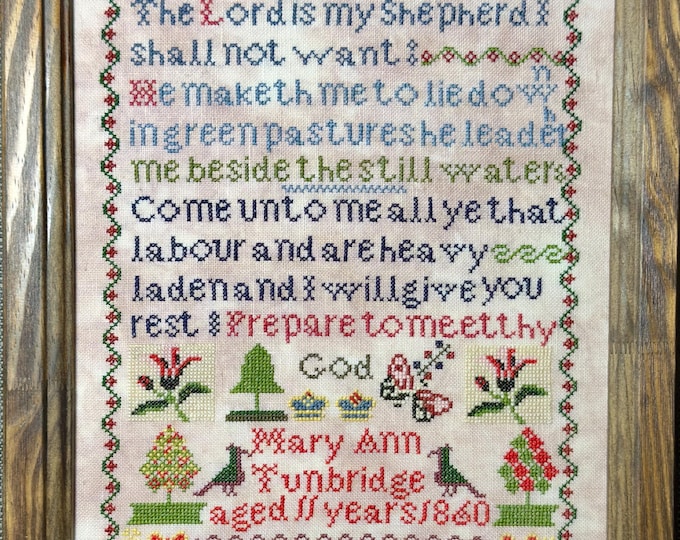 The Lord is my Shepherd I
shall not want I
He maketh me to lie down
in green pastures he leadeth
me beside the still waters
Come unto me all ye that
labour and are heavy
laden and I will give you
rest I Prepare to meet thy
God
Mary Ann
Tunbridge
aged 11 years 1860